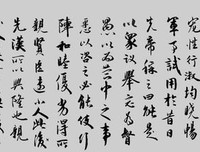 寵性行淑均曉暢
軍事試用於昔日
先帝稱之曰能是
以衆議舉寵爲督
愚以爲營中之事
悉以咨之必能使行
陣和睦優劣得所
親賢臣遠小人此後
先漢所以興隆也親